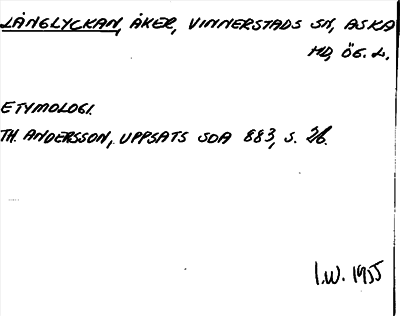 LÅNGLYCKAN, ÅKER, VINNERSTADS SN, ASKA
HD, ÖG. L.
ETYMOLOGI.
TH. ANDERSSON, UPPSATS SOA 883, S. 26.
I.W. 1955